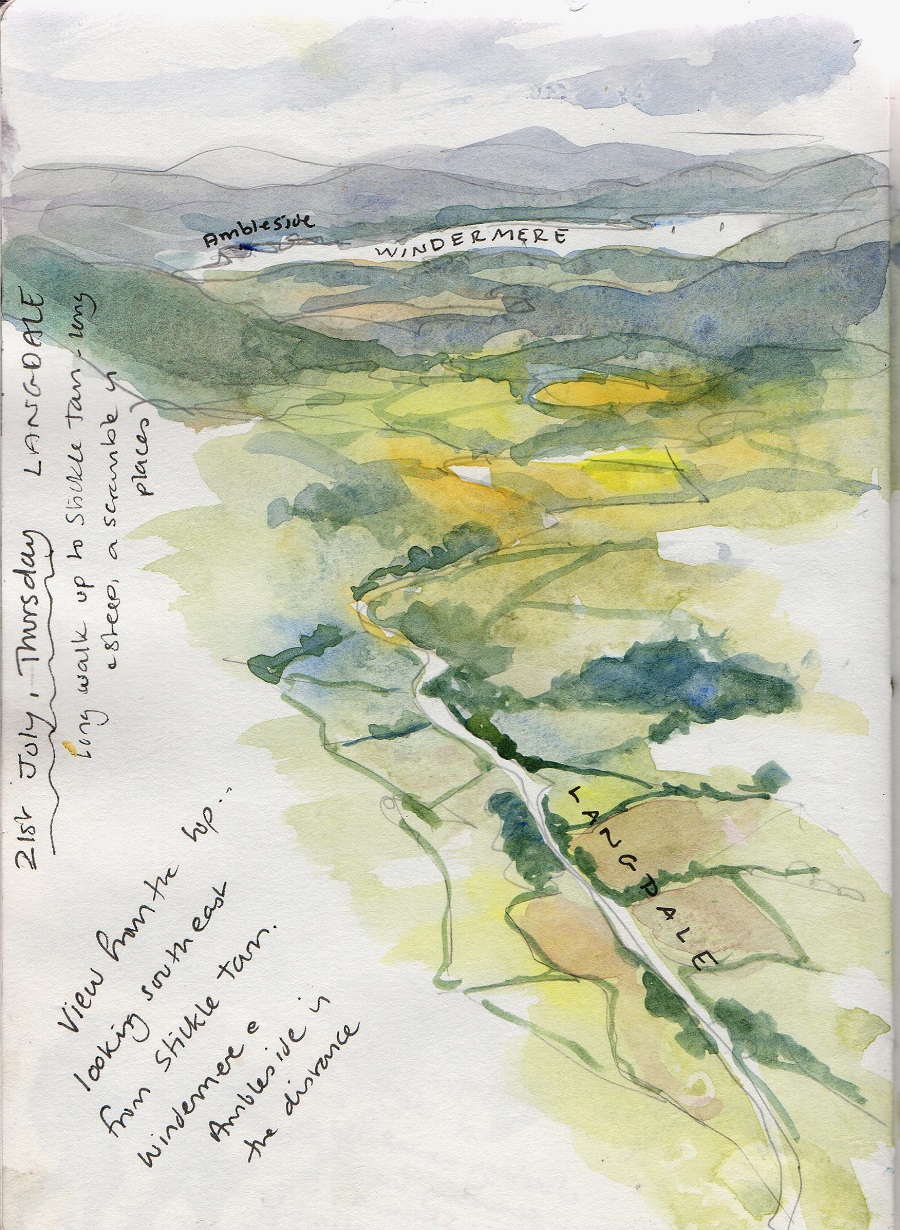 Ambleside
WINDERMERE
21st July, Thursday LANGDALE
Long walk up to Stickle Tarn - very
steep, a scramble in
places)
LANGDALE
View from the top...
looking south east
from Stickle Tarn.
Windermere &
Ambleside in
the distance